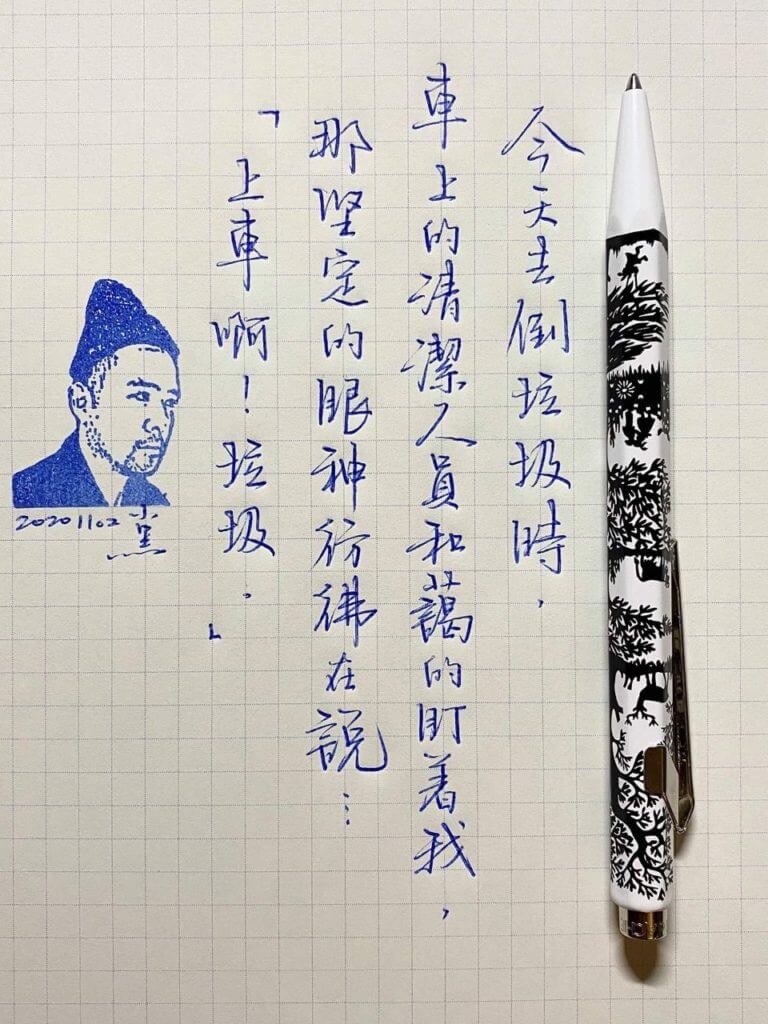 今天去倒垃圾時，
車上的清潔人員和藹的盯著我，
那堅定的眼神彷彿在說…
「上車啊！垃圾.」
20201102 黨